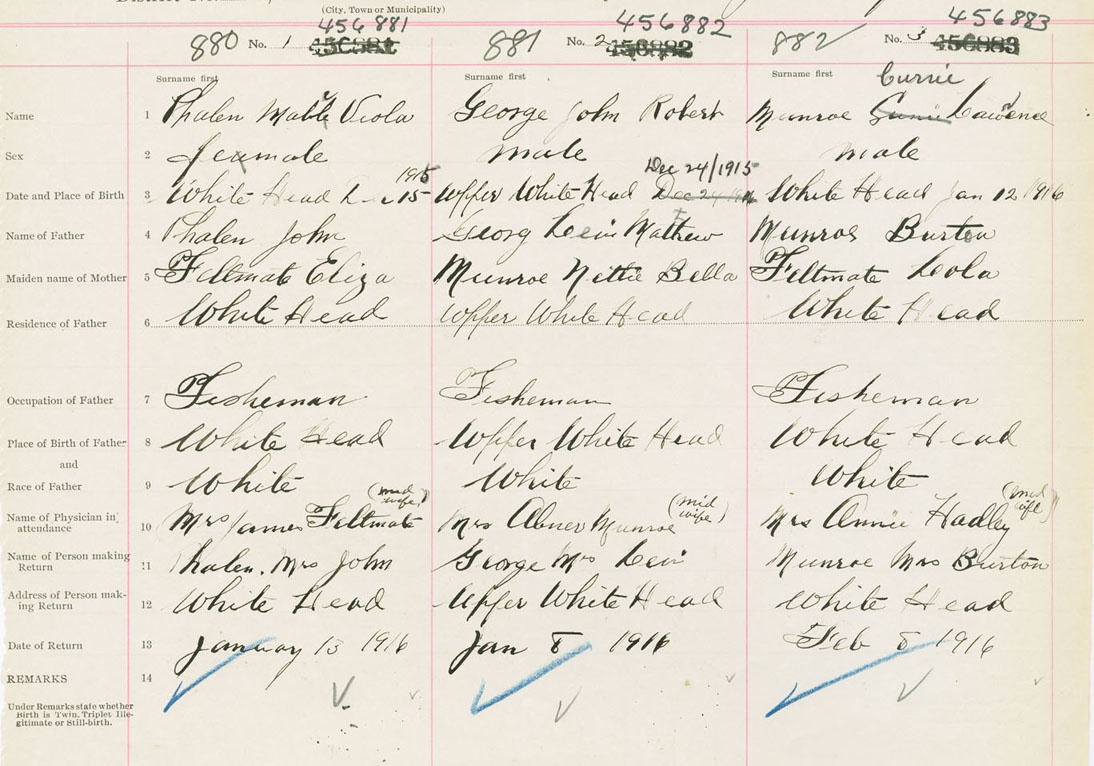 (City, Town or Municipality)
456881 456882 456883
880 No. 1 456581 881 No. 2 456882 882 No. 3 456883
Surname first Surname first Surname first Currie
Name 1 Phalen Mable Viola George John Robert Munroe Lawrence
Sex 2 Female male male
1915 Dec 24/1915
Date and Place of Birth 3 White Head 15 Upper White Head Dec 24 White Head Jan 12 1916
Name of Father 4 Phalen John Georg Levi Mathew Munroe Burton
Maiden name of Mother 5 Feltmate Eliza Munroe Nettie Bella Feltmate Lola
Residence of Father 6 White Head Upper White Head White Head
Occupation of Father 7 Fisheman Fisheman Fisheman
Place of Birth of Father 8 White Head Upper White Head White Head
and
Race of Father 9 White White White
(mid wife) (mid wife) (mid wife)
Name of Physician in attendance 10 Mrs James Feltmate Mrs Abner Munroe Mrs Annie Hadley
Name of Person making Return 11 Phalen. Mrs John George Mrs Levi Munroe Mrs Burton
Address of Person making Return 12 White Head Upper White Head White Head
Date of Return 13 January 13 1916 Jan 8 1916 Feb 8 1916
REMARKS 14
Under Remarks state whether
Birth is Twin, Triplet Ille-
gitimate or Still-birth.